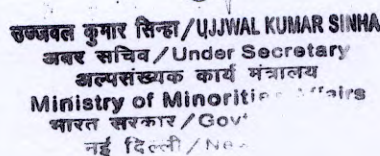 उज्जवल कुमार सिन्हा/UJJWAL KUMAR SINHA
अवर सचिव/Under Secretary
अल्पसंख्यक कार्य मंत्रालय
Ministry of Minorities Affairs
भारत सरकार/Gov
नई दिल्ली/Ne